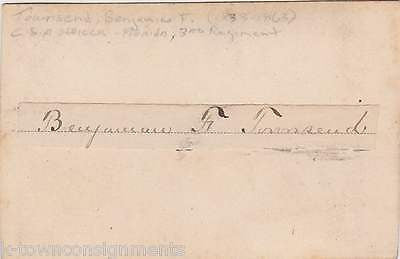 Townsend, Benjamin F. (1833-1863)
CSA officer - Florida, 3rd Regiment
Benjamin F Townsend
k-townconsignments